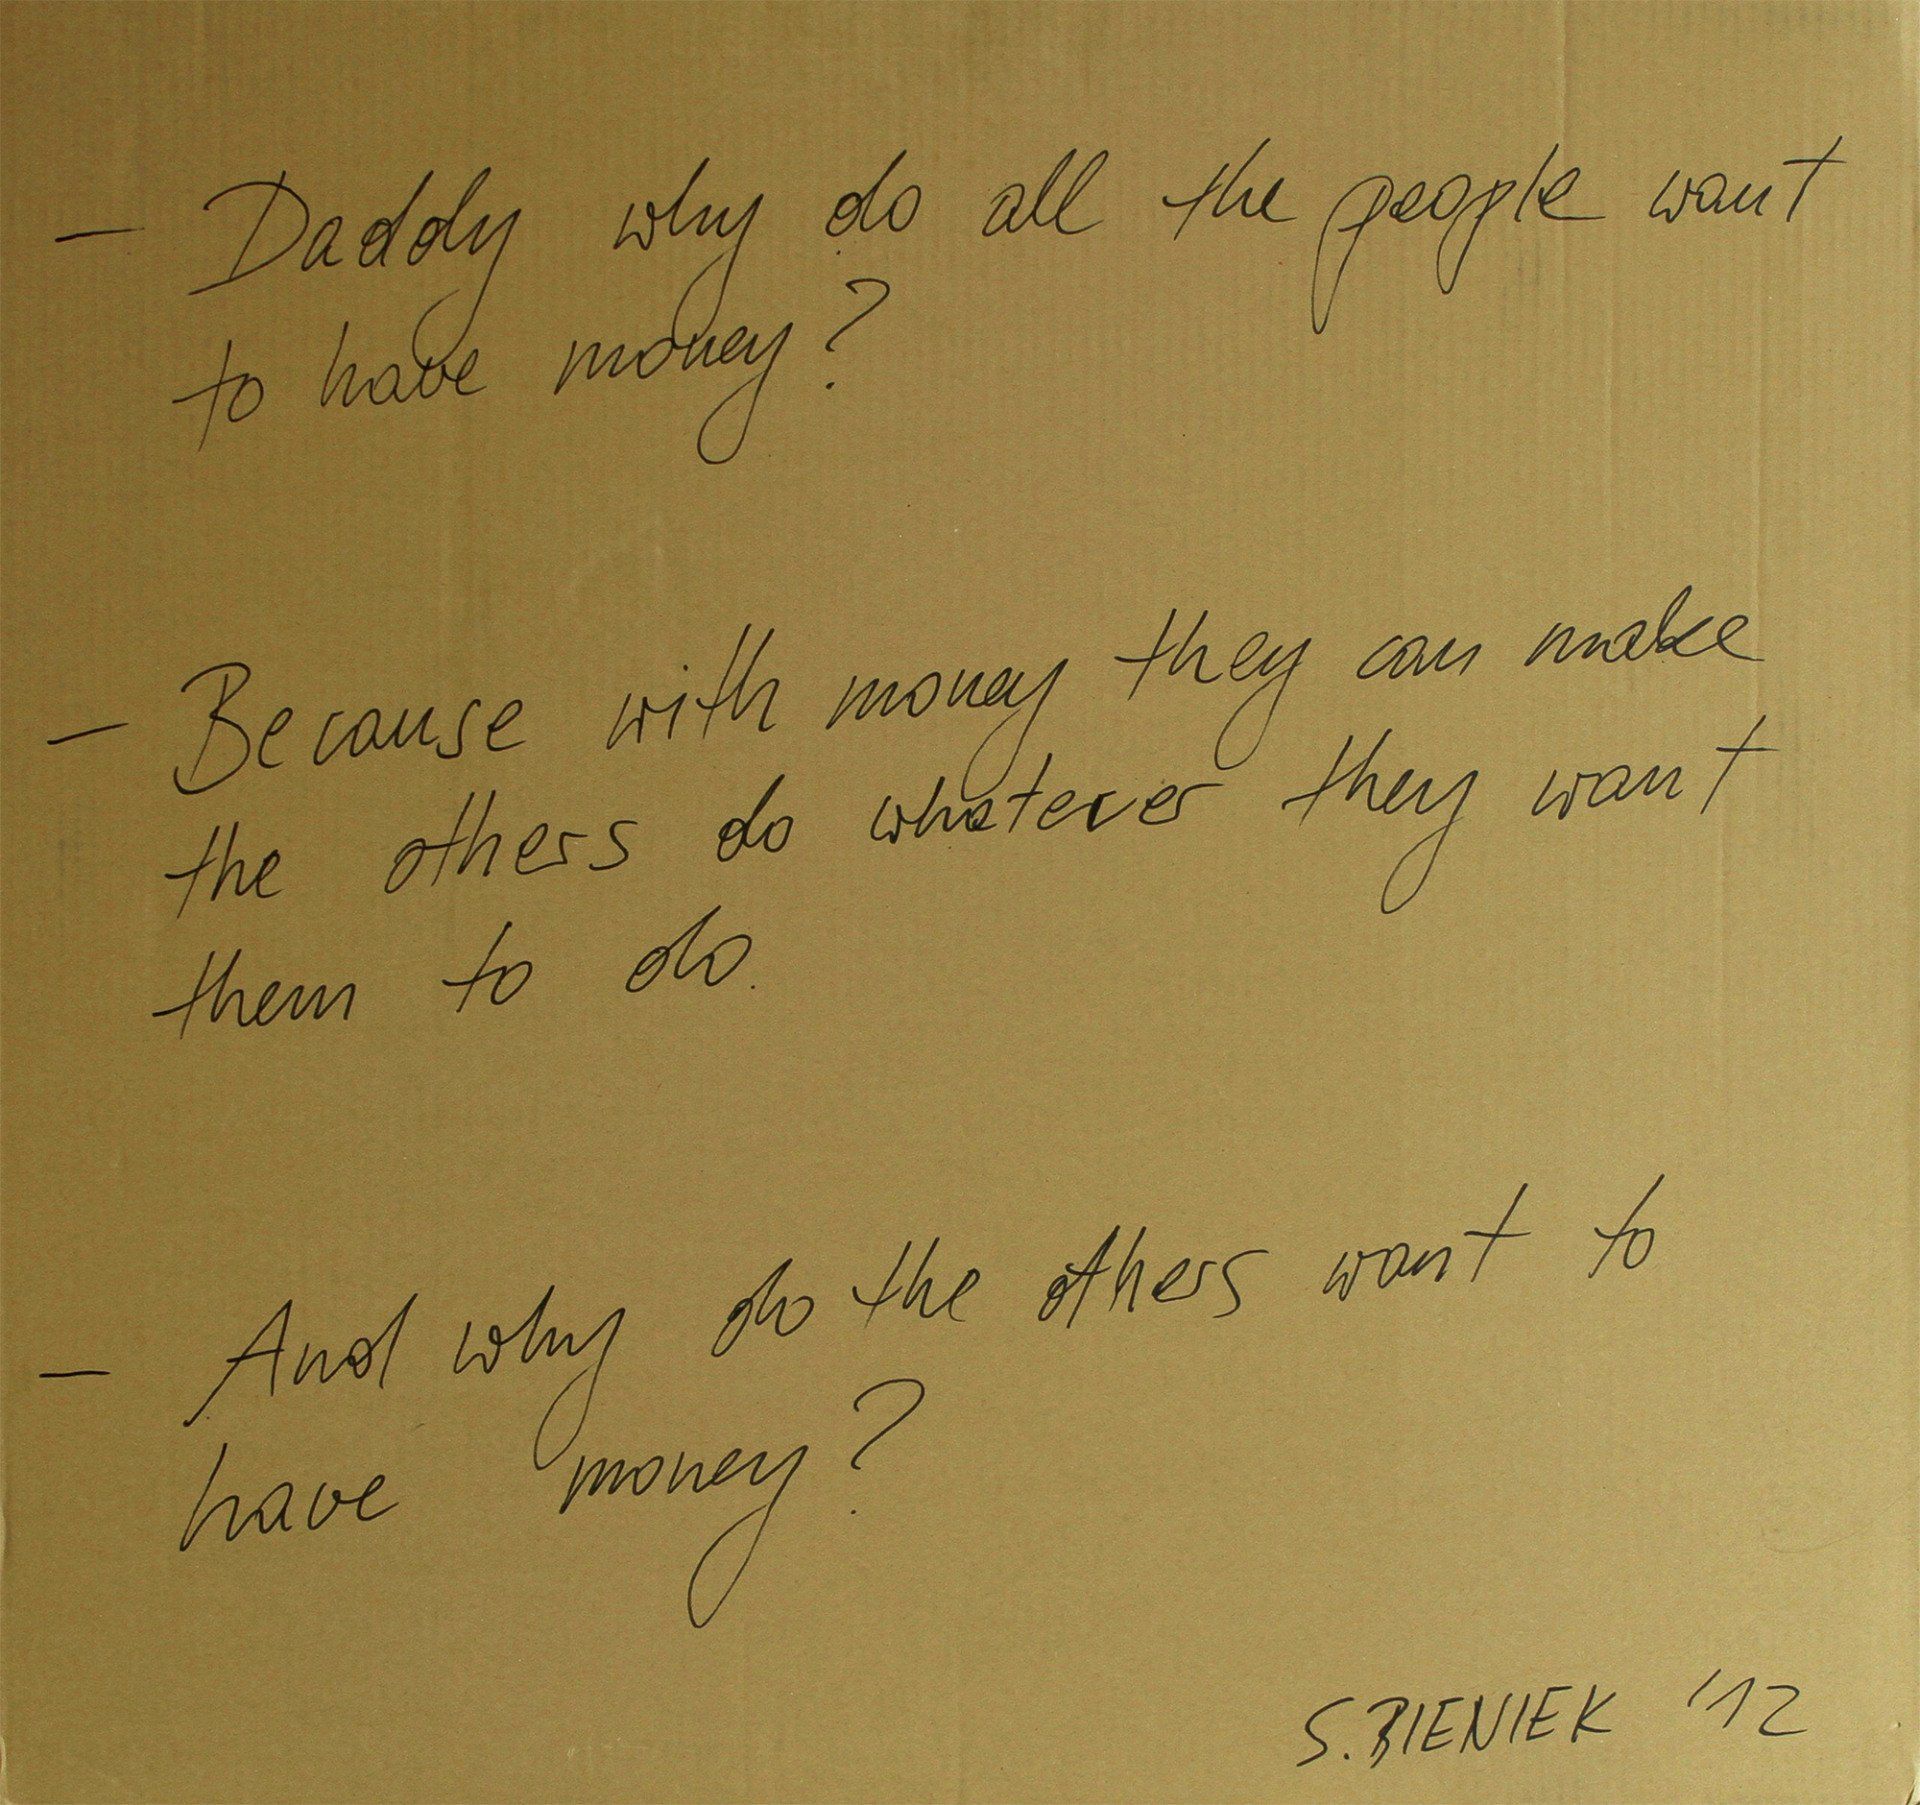 – Daddy why do all the people want
to have money?
– Because with money they can make
the others do whatever they want
them to do.
– And why do the others want to
have money?
S. BIENIEK '12